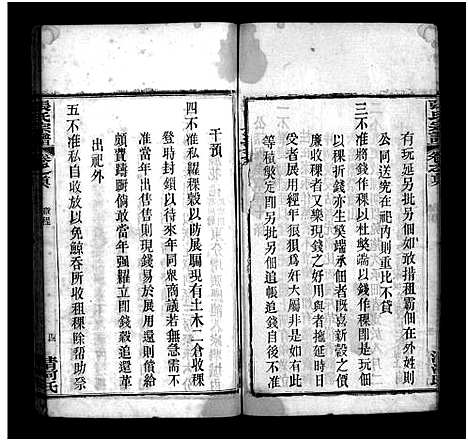 張氏宗譜
卷之首
有玩延另批另佃如敢措租霸佃在外姓則
公同送究在祠內則重比不貸
三不准將錢作稞以杜獘端以錢作稞即至
稞折錢亦生獘端承佃者旣喜新穀之價
廉收稞者又樂現錢之好用與者拖延時日
者展用經年狼狽爲奸大屬非是如以錢作
等積獘定另批另佃並追帳追錢者决不准
清河氏
張氏宗譜
卷之首
章程
干預
四不准私糶稞穀以防展騙現有土木二倉收稞
登時封鎖以待來年同衆商議若無急需不
准當年出售售則現錢易於展用還則償給
頗費躊躇倘敢當年強糶立罰錢穀追還革
出祀外
五不准私自收放以免鯨吞所收租稞除帮助祭
四
清河氏